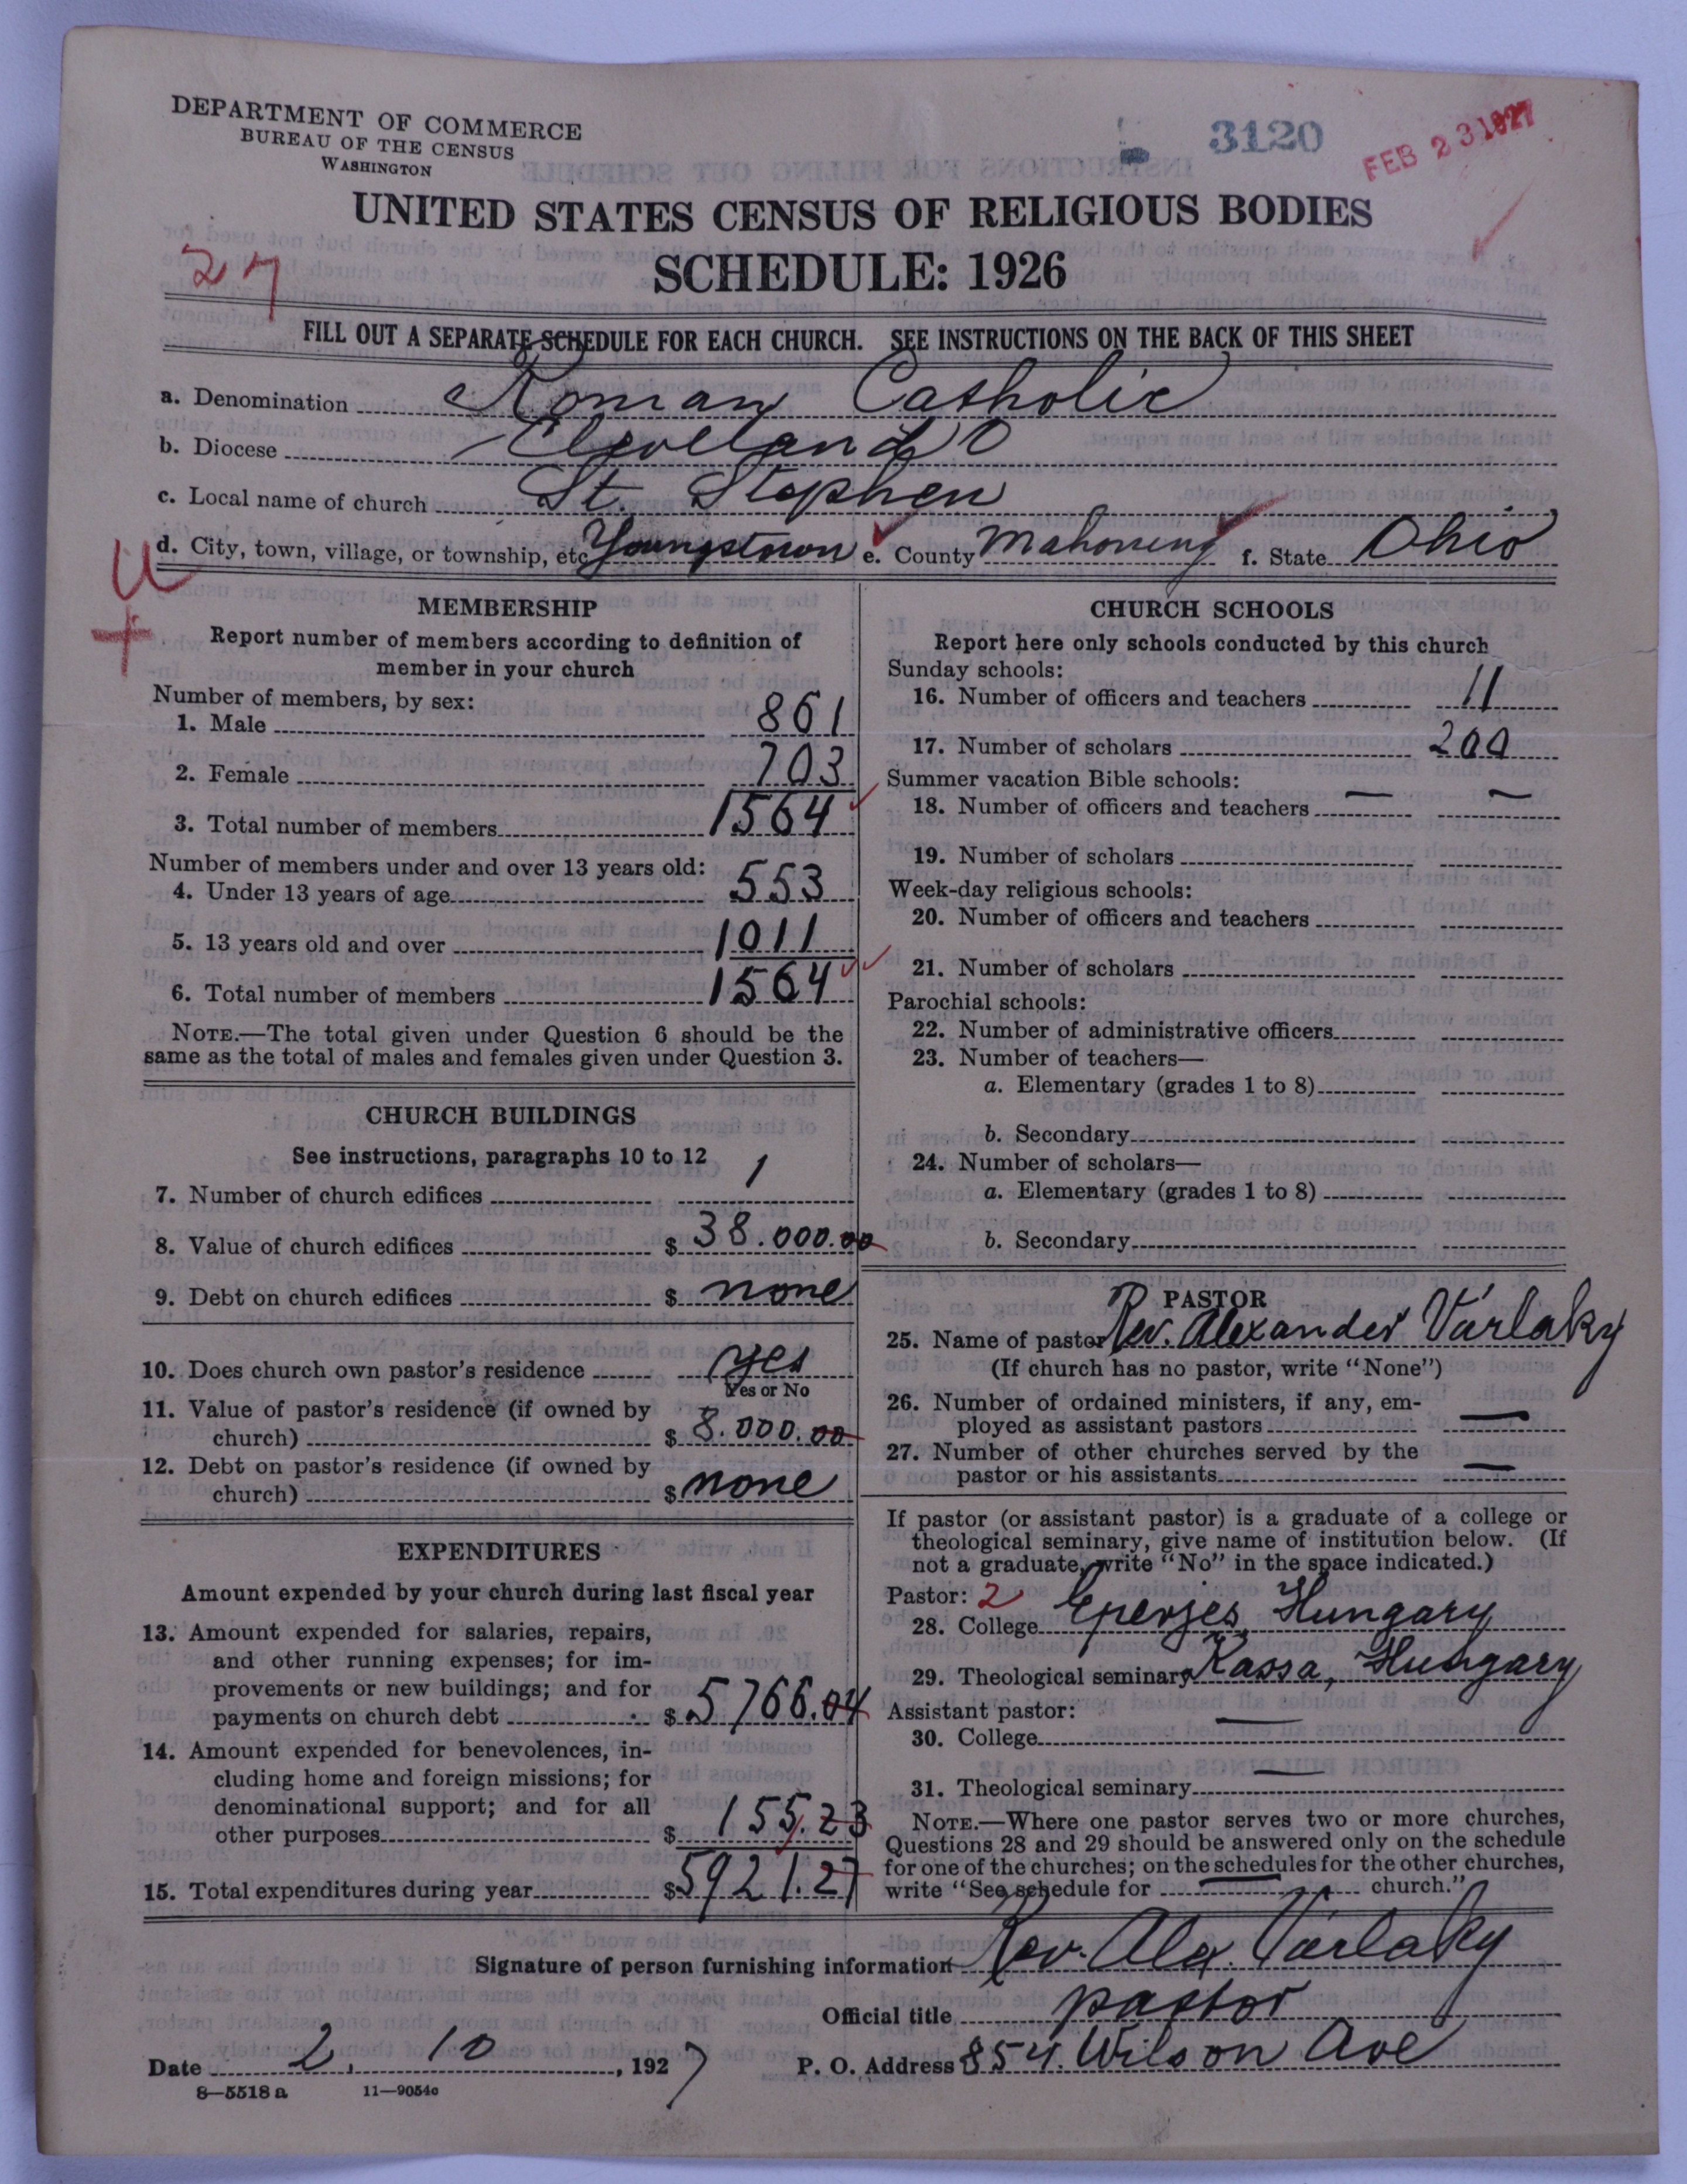 DEPARTMENT OF COMMERCE
BUREAU OF THE CENSUS
WASHINGTON
3120
FEB 23 1927
UNITED STATES CENSUS OF RELIGIOUS BODIES
27
SCHEDULE: 1926
FILL OUT A SEPARATE SCHEDULE FOR EACH CHURCH. SEE INSTRUCTIONS ON THE BACK OF THIS SHEET
a. Denomination Roman Catholic
b. Diocese Cleveland O
c. Local name of church St. Stephen
d. City, town, village, or township, etc Youngstown e. County Mahoning f. State Ohio
U
+
MEMBERSHIP
Report number of members according to definition of
member in your church
Number of members, by sex:
1. Male 861
2. Female 703
3. Total number of members 1564
Number of members under and over 13 years old:
4. Under 13 years of age 553
5. 13 years old and over 1011
6. Total number of members 1564
NOTE.—The total given under Question 6 should be the
same as the total of males and females given under Question 3.
CHURCH BUILDINGS
See instructions, paragraphs 10 to 12
7. Number of church edifices 1
8. Value of church edifices $ 38.000.00
9. Debt on church edifices $ none
10. Does church own pastor's residence yes
Yes or No
11. Value of pastor's residence (if owned by
church) $ 8.000.00
12. Debt on pastor's residence (if owned by
church) $ none
EXPENDITURES
Amount expended by your church during last fiscal year
13. Amount expended for salaries, repairs,
and other running expenses; for im-
provements or new buildings; and for
payments on church debt $ 5766.04
14. Amount expended for benevolences, in-
cluding home and foreign missions; for
denominational support; and for all
other purposes $ 155.23
15. Total expenditures during year $ 5921.27
CHURCH SCHOOLS
Report here only schools conducted by this church
Sunday schools:
16. Number of officers and teachers 11
17. Number of scholars 200
Summer vacation Bible schools:
18. Number of officers and teachers — —
19. Number of scholars
Week-day religious schools:
20. Number of officers and teachers
21. Number of scholars
Parochial schools:
22. Number of administrative officers
23. Number of teachers—
a. Elementary (grades 1 to 8)
b. Secondary
24. Number of scholars—
a. Elementary (grades 1 to 8)
b. Secondary
PASTOR
25. Name of pastor Rev. Alexander Várlaky
(If church has no pastor, write "None")
26. Number of ordained ministers, if any, em-
ployed as assistant pastors —
27. Number of other churches served by the
pastor or his assistants —
If pastor (or assistant pastor) is a graduate of a college or
theological seminary, give name of institution below. (If
not a graduate, write "No" in the space indicated.)
Pastor: 2
28. College Eperjes, Hungary
29. Theological seminary Kassa, Hungary
Assistant pastor:
30. College —
31. Theological seminary —
NOTE.—Where one pastor serves two or more churches,
Questions 28 and 29 should be answered only on the schedule
for one of the churches; on the schedules for the other churches,
write "See schedule for — church."
Signature of person furnishing information Rev. Alex. Várlaky
Official title pastor
Date 2. 10, 1927 P. O. Address 854. Wilson Ave
8—5518 a 11—9054c